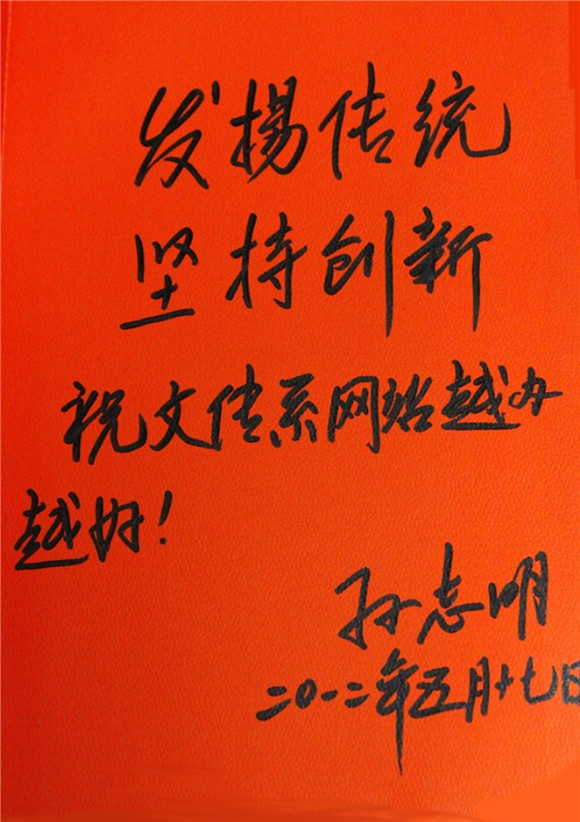 发揚传统
坚持创新
祝文传系网站越办
越好！
孙志明
二〇一二年五月十七日